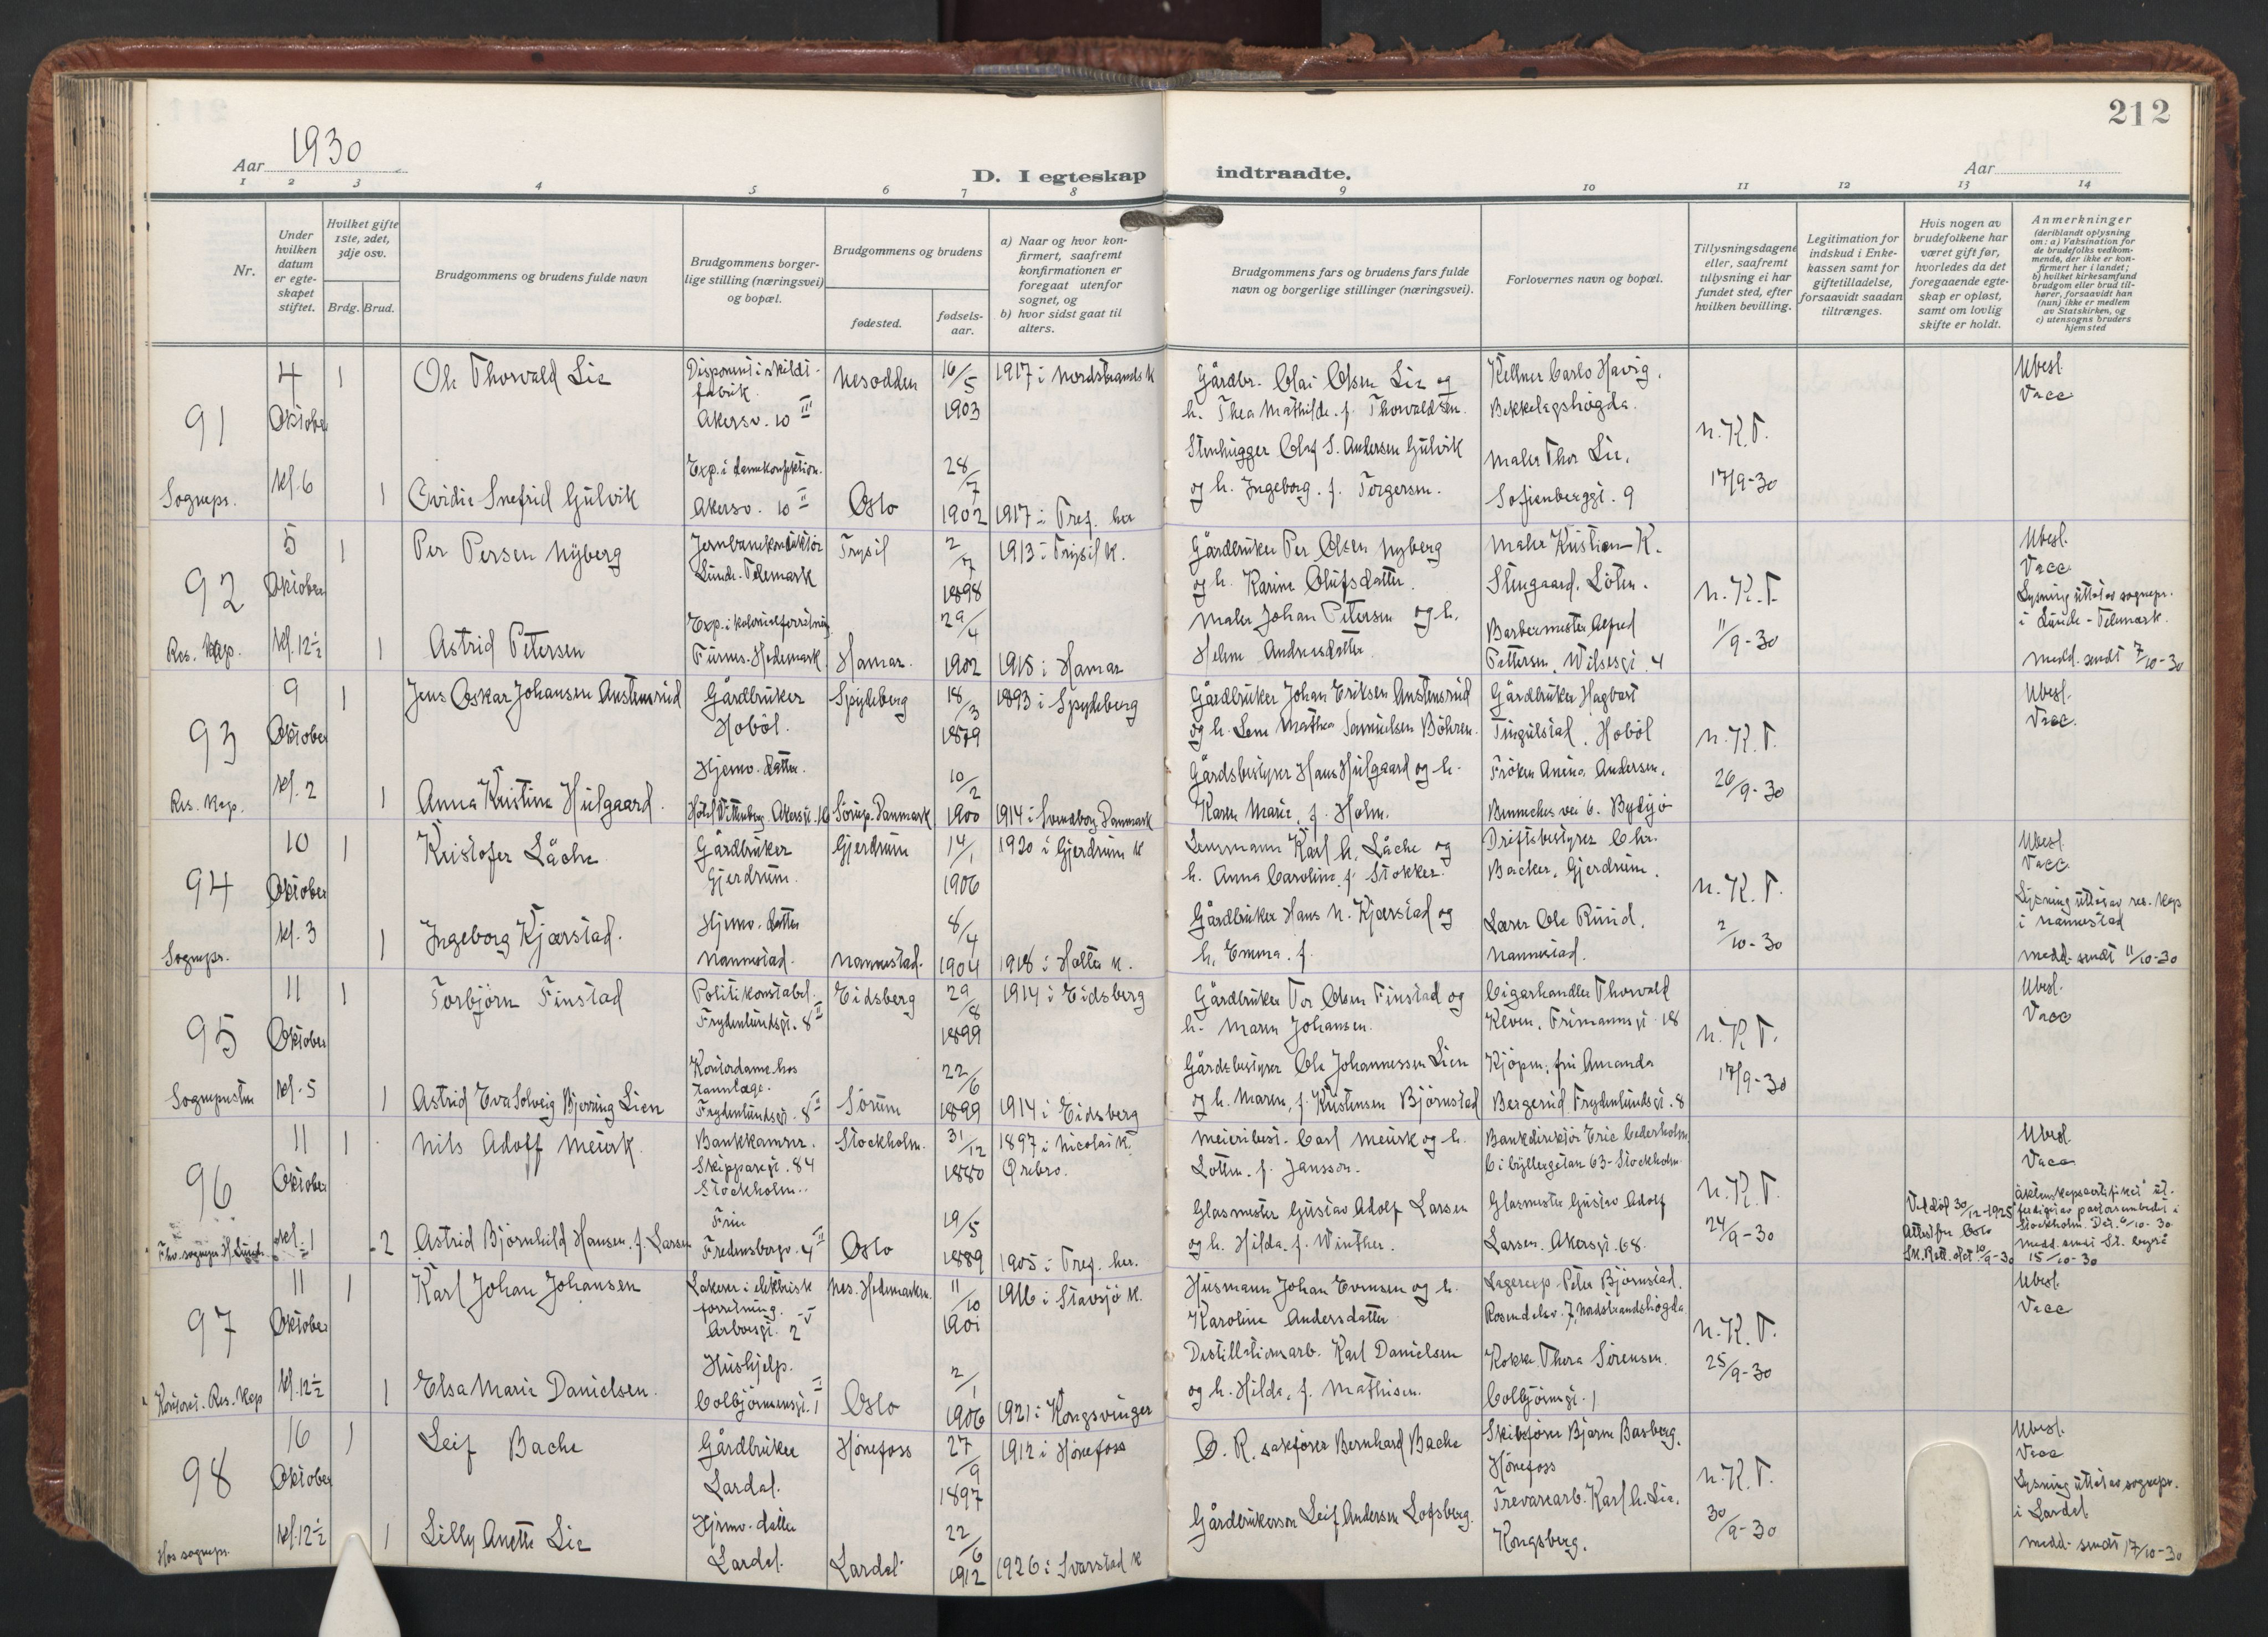 212
Aar 1930
D. I egteskap indtraadte.
Aar
1 2 3 4 5 6 7 8 9 10 11 12 13 14
Nr.
Under hvilken datum er egte-skapet stiftet.
Hvilket gifte 1ste, 2det, 3dje osv.
Brdg. Brud.
Brudgommens og brudens fulde navn
Brudgommens borger-lige stilling (næringsvei) og bopæl.
Brudgommens og brudens
fødested.
fødsels-aar.
a) Naar og hvor kon-firmert, saafremt konfirmationen er foregaat utenfor sognet, og
b) hvor sidst gaat til alters.
Brudgommens fars og brudens fars fulde navn og borgerlige stillinger (næringsvei).
Forlovernes navn og bopæl.
Tillysningsdagene eller, saafremt tillysning ei har fundet sted, efter hvilken bevilling.
Legitimation for indskud i Enke-kassen samt for giftetilladelse, forsaavidt saadan tiltrænges.
Hvis nogen av brudefolkene har været gift før, hvorledes da det foregaaende egte-skap er opløst, samt om lovlig skifte er holdt.
Anmerkninger
(deriblandt oplysning om: a) Vaksination for de brudefolks vedkom-mende, der ikke er kon-firmert her i landet;
b) hvilket kirkesamfund brudgom eller brud til-hører, forsaavidt han (hun) ikke er medlem av Statskirken, og
c) utensogns bruders hjemsted
91
4 Oktober kl. 6
Sognepr.
1 Ole Thorvald Lie
Akersv. 10 III
Nesodden
16/5 1903
1917 i Nordstrands k
Gårdbr. Olai Olsen Lie og
h. Thea Mathilde. f. Thorvaldsen.
Kellner Carlo Havig.
Bekkelagshøgda.
n. K. T.
17/9-30
Ubesl.
Vacc
1 Ovidie Snefrid Gulvik
Exp. i damekonfektion.
Akersv. 10 II
Oslo
28/7 1902
1917 i Tref. her
Stenhugger Olaf S. Andersen Gulvik
og h. Ingeborg. f. Torgersen.
Maler Thor Lie.
Sofienberggt. 9
92
5 Oktober kl. 12½
Res. Kap.
1 Per Persen Nyberg
Jernbanekonduktør
Lunde. Telemark
Trysil
2/7 1898
1913 i Trysil k.
Gårdbruker Per Olsen Nyberg
og h. Karine Olufsdatter.
Maler Kristian K.
Stengaard. Löten.
n. K. T.
11/9-30
Ubesl.
Vacc
Lysning uttat av sognepr.
i Lunde - Telemark.
Medd. sendt 7/10-30
1 Astrid Petersen
Exp. i kolonialforretning
Furnes. Hedemark
Hamar.
29/4 1902
1915 i Hamar
Maler Johan Petersen og h.
Helene Andreasdatter.
Barbermester Alfred
Pettersen. Wilsesgt. 4
93
9 Oktober kl. 2
Res. Kap.
1 Jens Oskar Johansen Austensrud
Gårdbruker
Hobøl.
Spydeberg
18/3 1879
1893 i Spydeberg
Gårdbruker Johan Eriksen Austensrud
og h. Lene Mathea Samuelsen Böhren.
Gårdbruker Hagbart
Tingulstad. Hobøl
n. K. T.
26/9-30
Ubesl.
Vacc.
1 Anna Kristine Hulgaard.
Hjemv. datter.
Sørup. Danmark
10/2 1900
1914 i Svendborg Danmark
Gårdsbestyrer Hans Hulgaard og h.
Karen Marie, f. Holm.
Frøken Anina Andersen.
Bennechesvei 6. Bygdø
94
10 Oktober kl. 3
Sognepr.
1 Kristofer Låche
Gårdbruker
Gjerdrum.
Gjerdrum
14/1 1906
1920 i Gjerdrum k
Lensmann Karl h. Låche og
h. Anna Caroline. f. Stokker.
Driftsbestyrer Chr.
Backer. Gjerdrum.
n. K. T.
2/10-30
Ubesl.
Vacc.
Lysning uttat av res. kap
i Nannestad
Medd. sendt 11/10-30
1 Ingeborg Kjærstad.
Hjemv. datter
Nannestad.
Nannestad.
8/4 1904
1918 i Holter k.
Gårdbruker Hans N. Kjærstad og
h. Emma. f.
Lærer Ole Ruud.
Nannestad.
95
11 Oktober kl. 5
Sognepresten
1 Torbjörn Finstad
Politikonstabel.
Frydenlundsgt. 8 II
Eidsberg
29/8 1899
1914 i Eidsberg
Gårdbruker Tor Olsen Finstad og
h. Maren Johansen.
Cigarhandler Thorvald
Kleven. Frimannsgt 18
n. K. T.
17/9-30
Ubesl.
Vacc
1 Astrid Eva Solveig Bjerring Lien
Kontordame hos
tannlæge.
Frydenlundsgt. 8 II
Sørum
22/6 1899
1914 i Eidsberg
Gårdsbestyrer Ole Johannessen Lien
og h. Maren, f. Kristensen Björnstad
Kjöpm. fru Amanda
Bergerud. Frydenlundsgt. 8
96
11 Oktober kl. 1
1 Nils Adolf Meurk.
Bankkamrer.
Skippargt. 84
Stockholm.
Stockholm.
31/12 1880
1897 i Nicolai k.
Örebro.
Meieribest. Carl Meurk og h.
Lotten. f. Jansson.
Bankdirektör Eric Cederholm
63- Stockholm.
n. K. T.
24/9-30
Ubesl.
Vacc
2 Astrid Björnhild Hansen. f. Larsen
Frue
Fredensborgv. 4 II
Oslo
19/5 1889
1905 i Tref. her.
Glasmester Gustav Adolf Larsen
og h. Hilda. f. Winther.
Glasmester Gustav Adolf
Larsen. Akersgt. 68.
Ved död 30/12-1925
Attest fra Oslo
Sk. Rett. dat 10/9-30
äktenskapscertifikat ut-
ferdiget av pastorsembedet i
Stockholm. Dat. 6/10-30
15/10-30
97
11 Oktober kl. 12½
Kontoret. Res. Kap
1 Karl Johan Johansen
Lakerer i elektrisk
forretning.
Arbosgt. 2 V
Nes. Hedemarken.
11/10 1901
1916 i Stavsjø k.
Husmann Johan Evensen og h.
Karoline Andersdatter
Lagerexp Peter Björnstad.
Rosendalsv. 7, Nordstrandshøgda
n. K. T.
25/9-30
Ubesl.
Vacc
1 Elsa Marie Danielsen.
Hushjelp.
Colbjörnsensgt. 1
Oslo
2/1 1906
1921 i Kongsvinger
Destillationsarb. Karl Danielsen
og h. Hilda, f. Mathisen.
Kokke Thora Sørensen.
Colbjörnsgt. 1
98
16 Oktober kl. 12½
Hos sognepr.
1 Leif Bache
Gårdbruker
Lardal.
Hønefoss
27/9 1897
1912 i Hønefoss
O. R. sakfører Bernhard Bache
Skibsfører Bjarne Basberg.
Hønefoss
n. K. T.
30/9-30
Ubesl.
Vacc
Lysning uttat av sognepr.
i Lardal
Medd. sendt 17/10-30
1 Lilly Anette Lie
Hjemv. datter
Lardal.
Lardal.
22/6 1912
1926 i Svarstad k
Gårdbrukersøn Leif Andersen Lofsberg.
Trevarearb. Karl h. Lie.
Kongsberg.